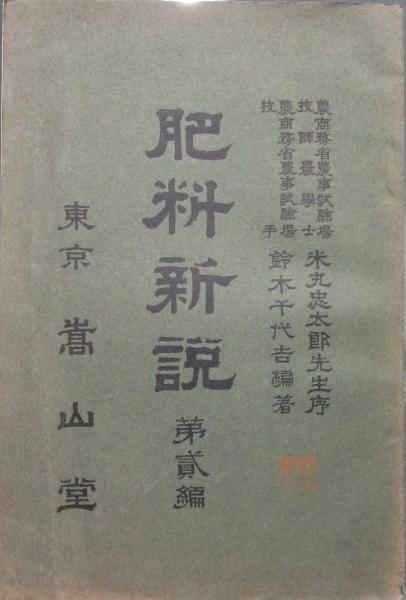 農商務省農事試驗場
技師農學士
米丸忠太郎先生序
農商務省農事試驗場
技手
鈴木千代吉編著
肥料新説
第貳編
東京 嵩山堂